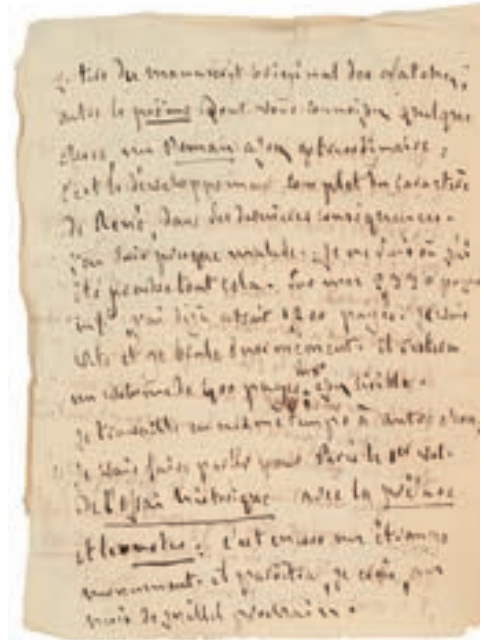 tiré du manuscrit original des Natchez,
outre le poëme dont vous connoissez quelque
chose, un Roman assez extraordinaire,
c'est le développement complet du caractère
de René, dans ses dernières conséquences.
j'en suis presque malade. Je ne sais où j'ai
été prendre tout cela. Sur mes pages
in-f° j'ai déjà 1200 pages. je suis
et ne brûle énormément. il restera
un volume de 400 pages assez lisible.
Je travaille en même temps à autre chose,
je vais faire pour Paris le 1er vol.
de l'Essai historique avec la préface
et les notes; c'est encore un étrange
monument. il paroîtra, je crois, au
mois de juillet prochain.